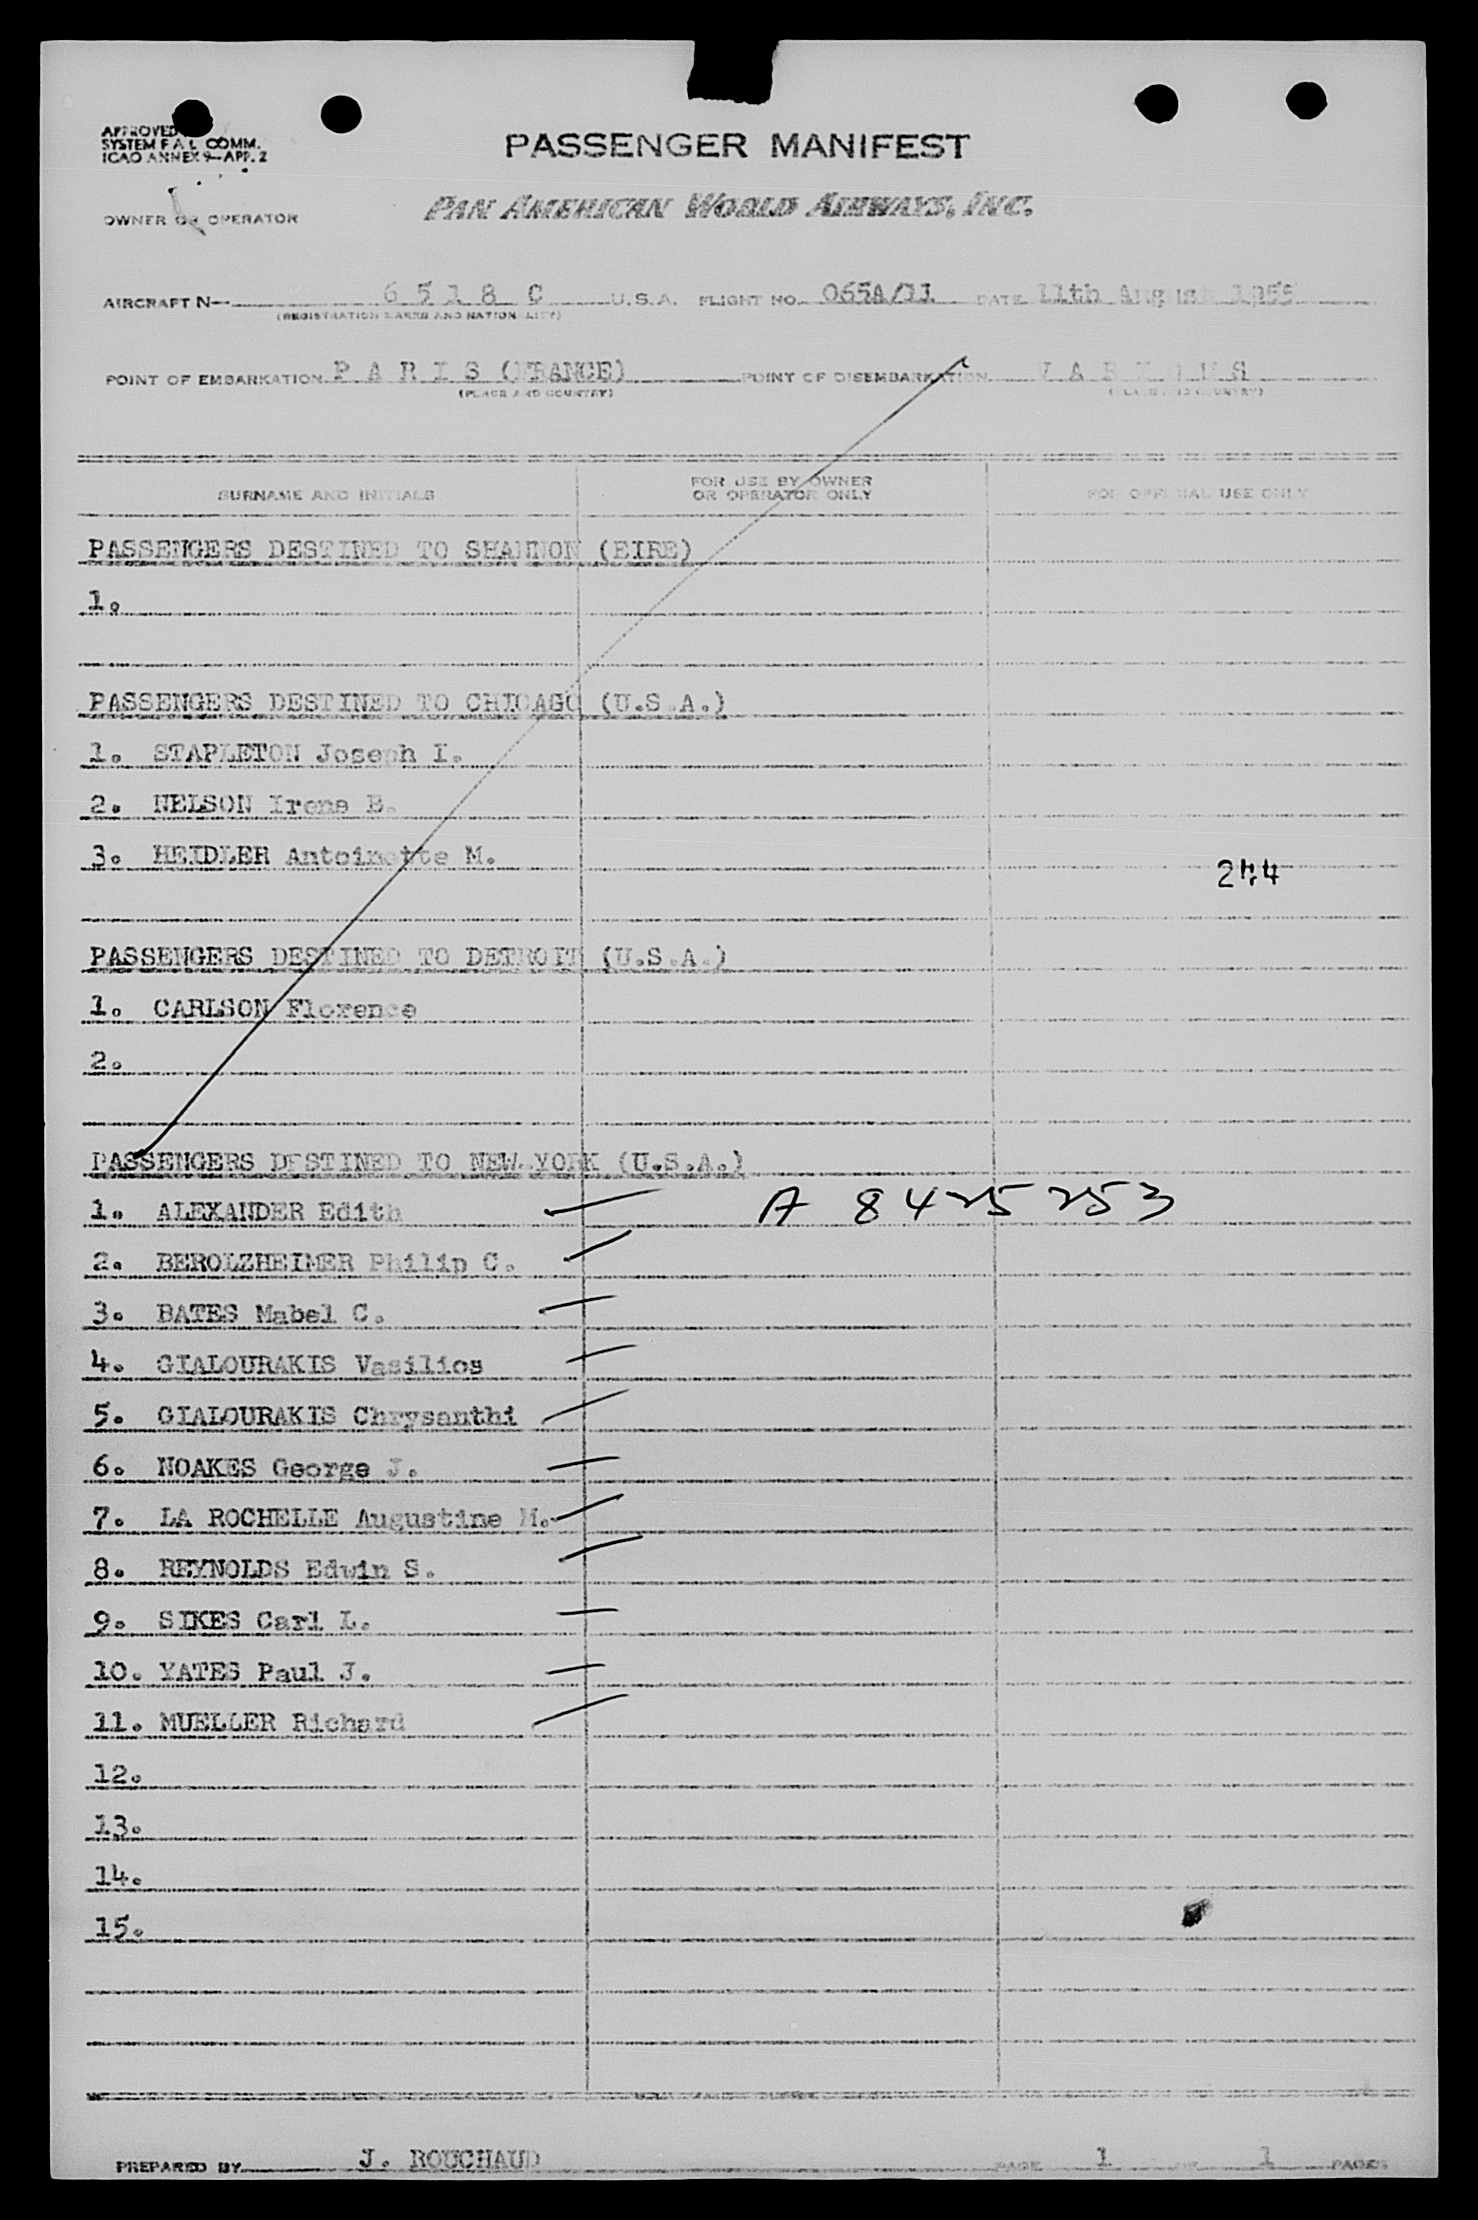 APPROVED
SYSTEM F A L COMM.
ICAO ANNEX 9-APP. 2
PASSENGER MANIFEST
OWNER OR OPERATOR PAN AMERICAN WORLD AIRWAYS, INC.
AIRCRAFT N- 6 5 1 8 C U.S.A. FLIGHT NO. 065A/11 DATE 11th August 1955
(REGISTRATION MARKS AND NATIONALITY)
POINT OF EMBARKATION P A R I S (FRANCE) POINT OF DISEMBARKATION V A R I O U S
(PLACE AND COUNTRY) (PLACE AND COUNTRY)
SURNAME AND INITIALS FOR USE BY OWNER OR OPERATOR ONLY FOR OFFICIAL USE ONLY
PASSENGERS DESTINED TO SHANNON (EIRE)
1.
PASSENGERS DESTINED TO CHICAGO (U.S.A.)
1. STAPLETON Joseph I.
2. NELSON Irene B.
3. HEIDLER Antoinette M.
244
PASSENGERS DESTINED TO DETROIT (U.S.A.)
1. CARLSON Florence
2.
PASSENGERS DESTINED TO NEW YORK (U.S.A.)
1. ALEXANDER Edith A 8425253
2. BEROLZHEIMER Philip C.
3. BATES Mabel C.
4. GIALOURAKIS Vasilios
5. GIALOURAKIS Chrysanthi
6. NOAKES George J.
7. LA ROCHELLE Augustine M.
8. REYNOLDS Edwin S.
9. SIKES Carl L.
10. YATES Paul J.
11. MUELLER Richard
12.
13.
14.
15.
PREPARED BY J. ROUCHAUD PAGE 1 OF 1 PAGES